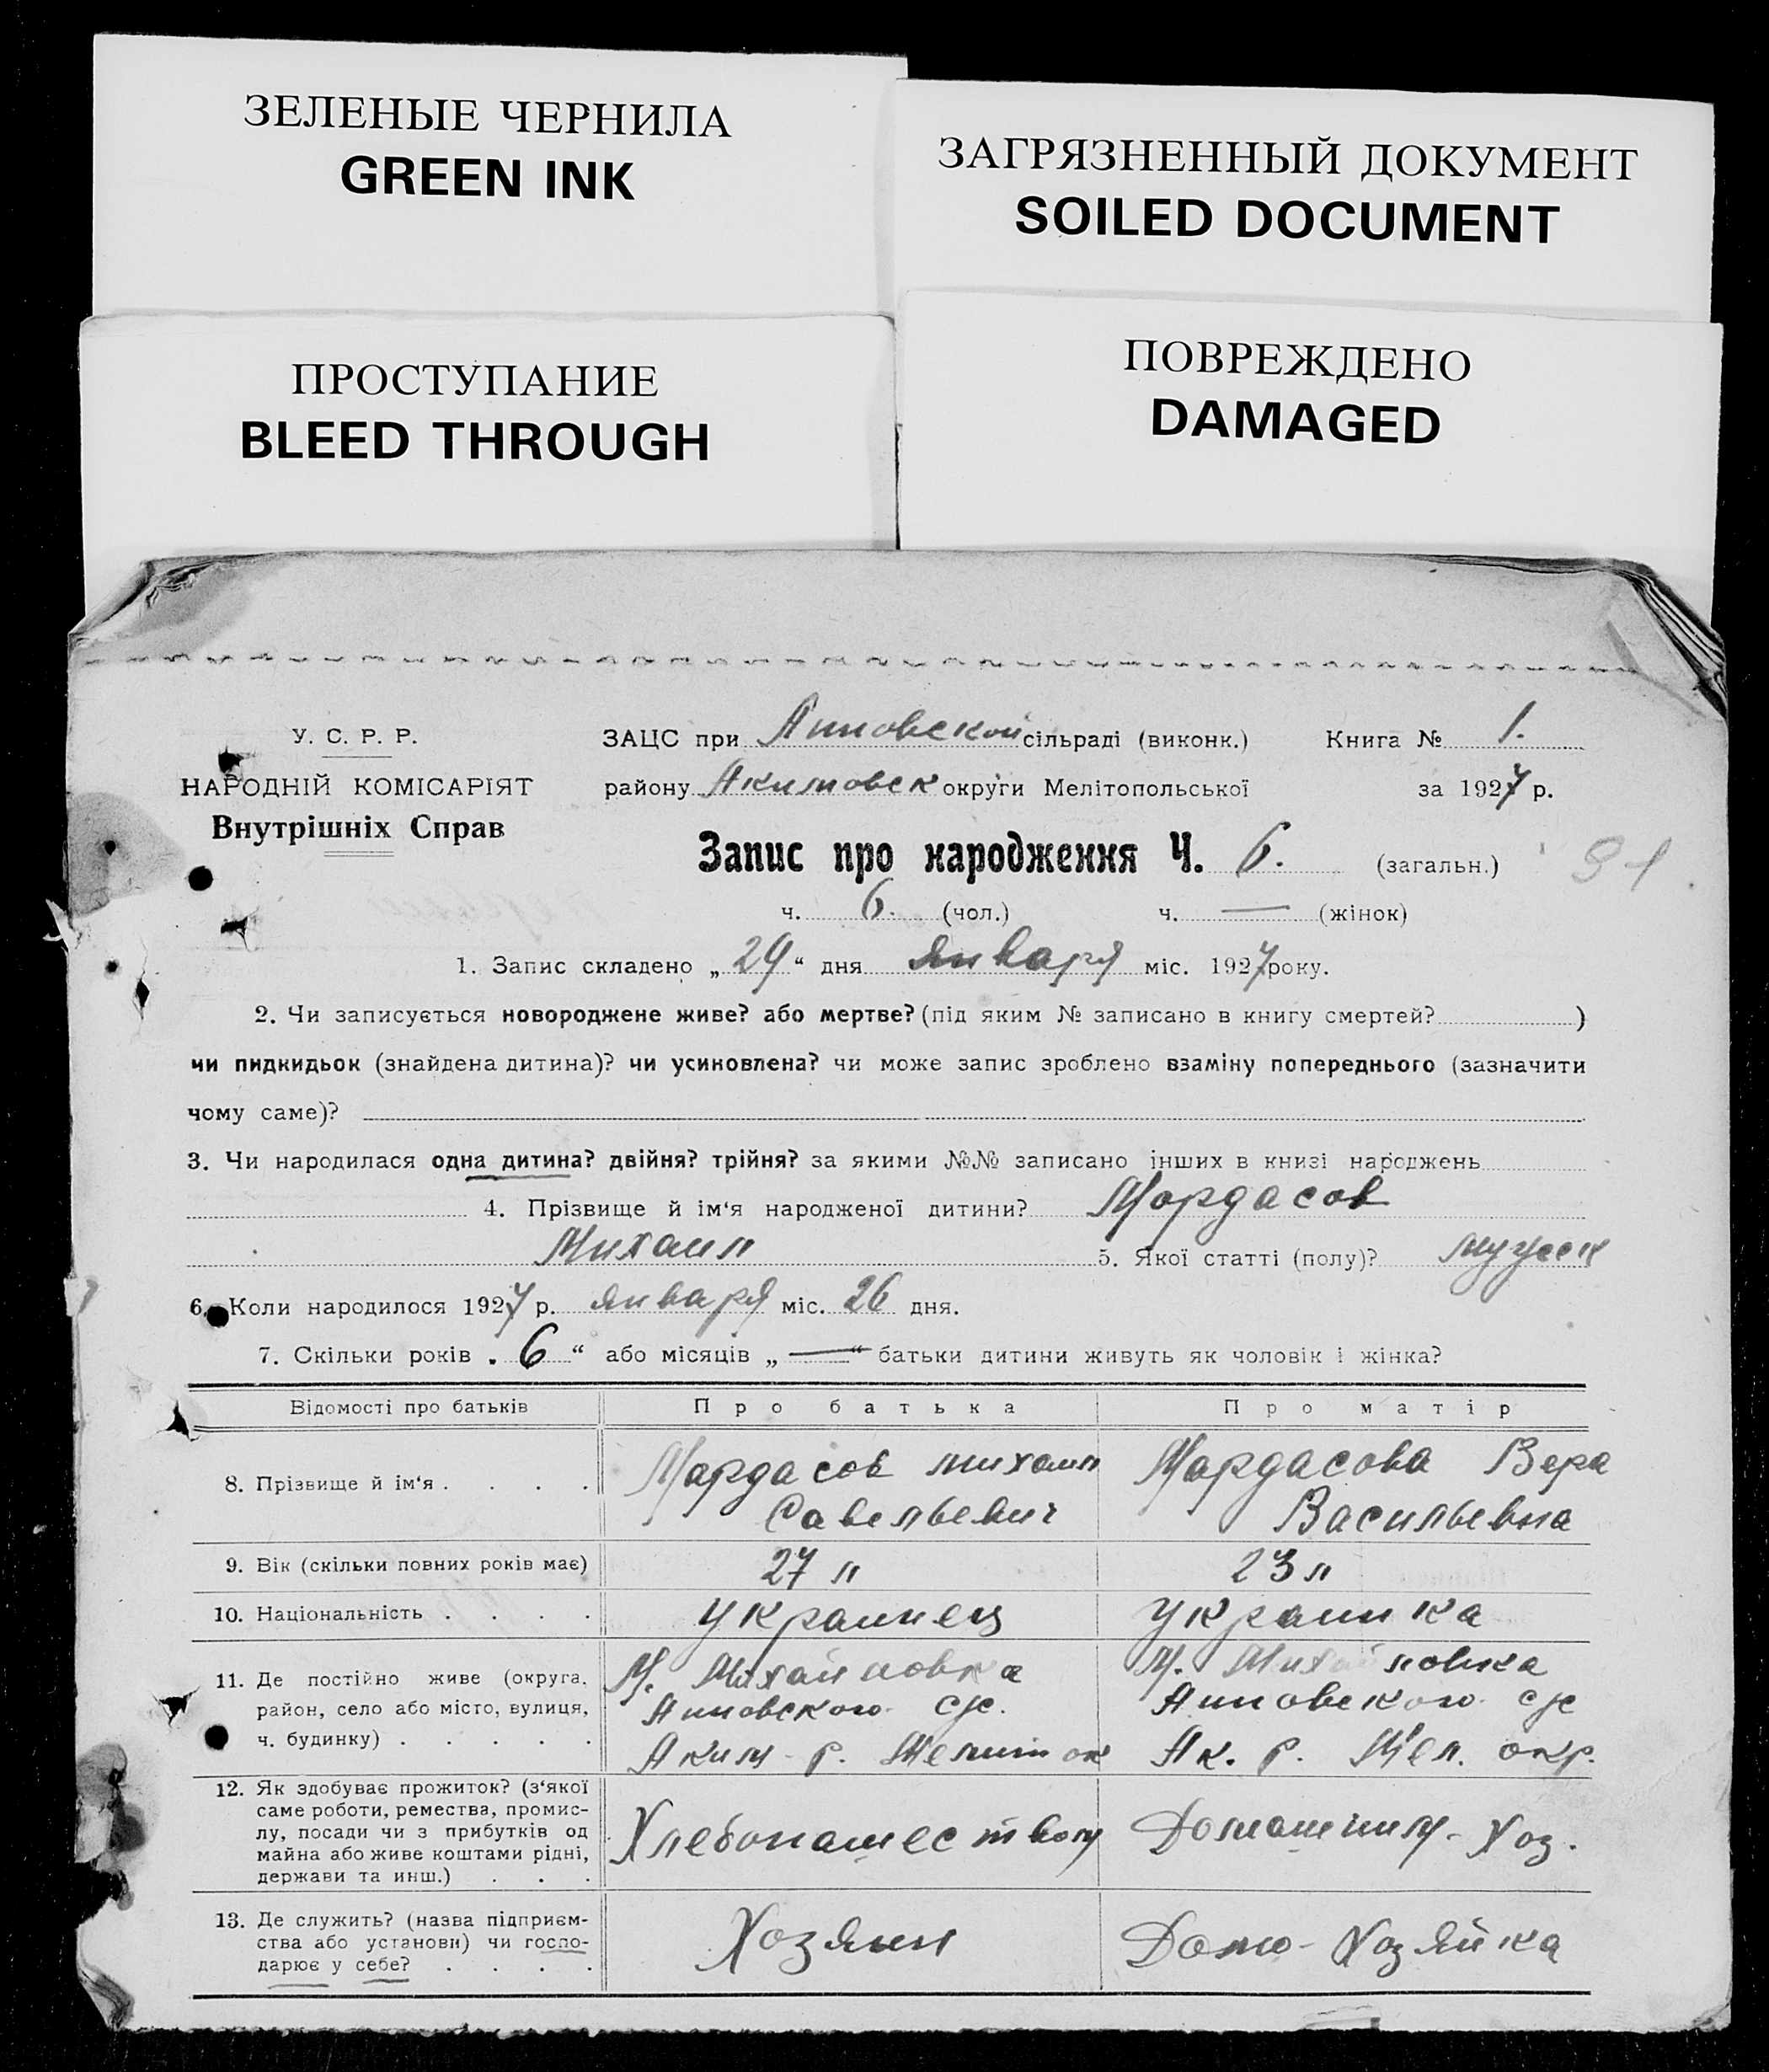 ЗЕЛЕНЫЕ ЧЕРНИЛА
GREEN INK
ЗАГРЯЗНЕННЫЙ ДОКУМЕНТ
SOILED DOCUMENT
ПРОСТУПАНИЕ
BLEED THROUGH
ПОВРЕЖДЕНО
DAMAGED
У. С. Р. Р.
НАРОДНІЙ КОМІСАРІЯТ
Внутрішніх Справ
ЗАЦС при Анновской сільраді (виконк.) Книга № 1.
району Акимовск округи Мелітопольської за 1927 р.
Запис про народження Ч. 6. (загальн.) 91
ч. 6. (чол.) ч. — (жінок)
1. Запис складено „29“ дня января міс. 1927 року.
2. Чи записується новороджене живе? або мертве? (під яким № записано в книгу смертей? )
чи пидкидьок (знайдена дитина)? чи усиновлена? чи може запис зроблено взаміну попереднього (зазначити
чому саме)?
3. Чи народилася одна дитина? двійня? трійня? за якими №№ записано інших в книзі народжень
4. Прізвище й ім‘я народженої дитини? Мордасов
Михаил 5. Якої статті (полу)? мужск
6. Коли народилося 1927 р. января міс. 26 дня.
7. Скільки років „6“ або місяців „—“ батьки дитини живуть як чоловік і жінка?
Відомості про батьків Про батька Про матір
8. Прізвище й ім‘я . . . . Мардасов михаил Савельевич Мардасова Вера Васильевна
9. Вік (скільки повних років має) 27 л 23 л
10. Національність . . . . Украинец Украинка
11. Де постійно живе (округа, район, село або місто, вулиця, ч. будинку) . . . . . М. Михайловка Анновского с/с. Аким. р. Мелит ок М. Михайловка Анновского с/с Ак. р. Мел. окр.
12. Як здобуває прожиток? (з‘якої саме роботи, ремества, промислу, посади чи з прибутків од майна або живе коштами рідні, держави та инш.) . . . Хлебопашеством Домашним. Хоз.
13. Де служить? (назва підприємства або установи) чи господарює у себе? . . . . Хозяин Домо-Хозяйка